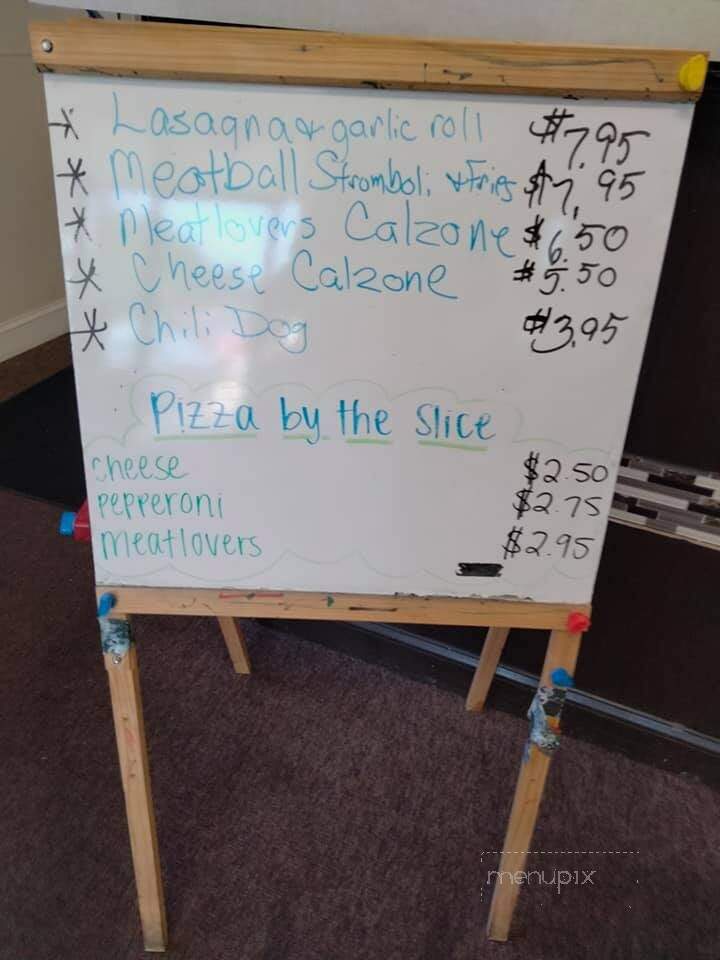 * Lasagna & garlic roll $7.95
* Meatball Stromboli & Fries $7.95
* Meatlovers Calzone $6.50
* Cheese Calzone $5.50
* Chili Dog $3.95
Pizza by the Slice
cheese $2.50
pepperoni $2.75
meatlovers $2.95
menupix